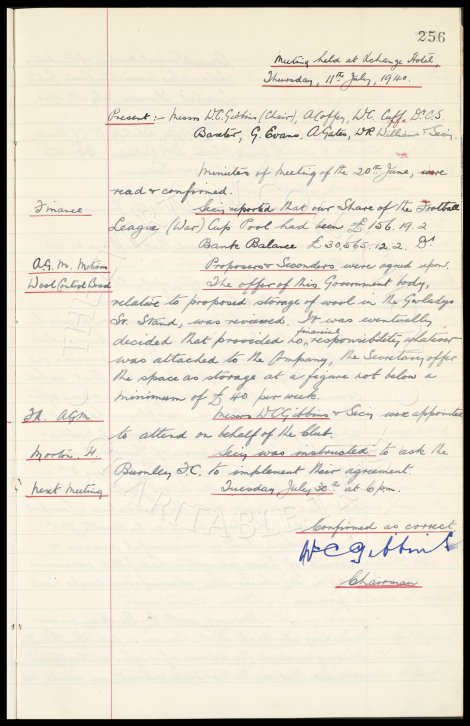 256
Meeting held at Exchange Hotel,
Thursday, 11th July, 1940.
Present :- Messrs W.C. Gibbins (Chair), A. Coffey, W.C. Cuff, Dr. C.S.
Baxter, G. Evans, A. Gates, W.R. Williams & Secy.
Minutes of Meeting of the 20th June, were
read & confirmed.
Finance
Secy reported that our Share of the Football
League (War) Cup Pool had been £156.19.2
Bank Balance £30,565.12.2. Dr.
A.G.M. Motions
Proposers & Seconders were agreed upon.
Wool Control Board
The offer of this Government body,
relative to proposed storage of wool in the Gwladys
St. Stand, was reviewed. It was eventually
decided that provided no financial responsibility whatever
was attached to the Company, the Secretary offer
the space as storage at a figure not below a
minimum of £40 per week.
F.A. A.G.M.
Messrs W.C. Gibbins & Secy were appointed
to attend on behalf of the Club.
Morton H.
Secy was instructed to ask the
Burnley F.C. to implement their agreement.
Next Meeting
Tuesday, July 30th at 6pm.
Confirmed as correct
W C Gibbins
Chairman